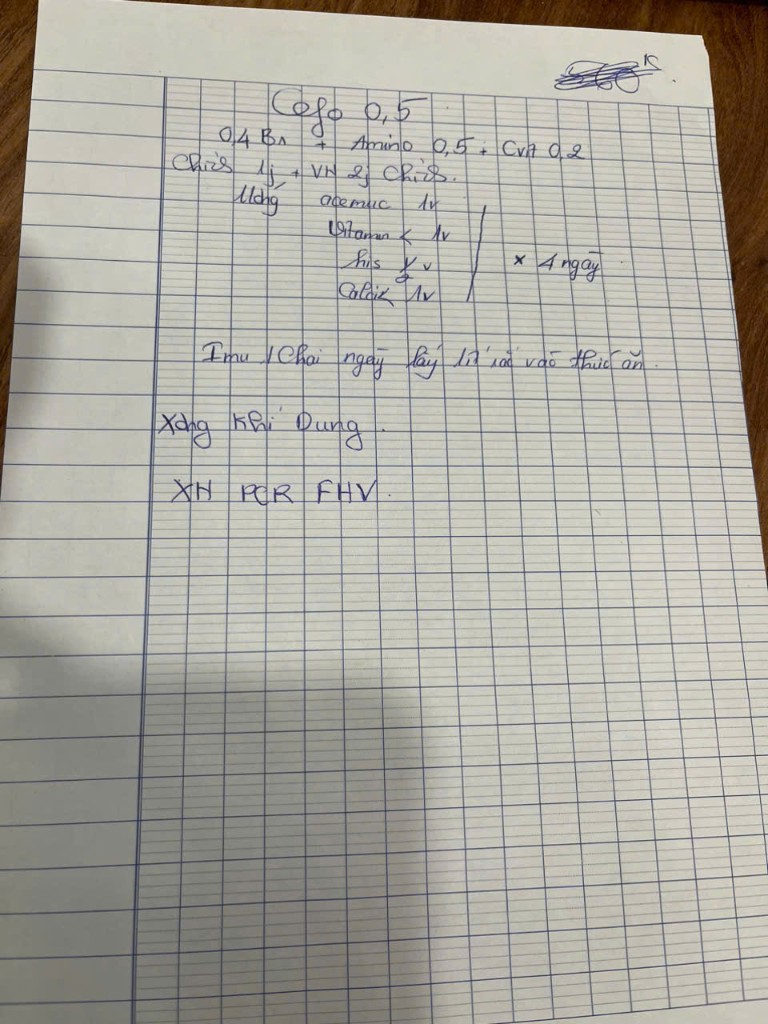 K
Cefo 0,5
0,4 Bn + Amino 0,5 + CvA 0,2
Chiều 1j + VN 2j Chiều.
Uống acemuc 1v
Vitamin K 1v
his v
Calcik 1v
× 4 ngày
Imu 1 Chai ngày lấy vào thức ăn.
Xông Khí Dung.
XN PCR FHV.